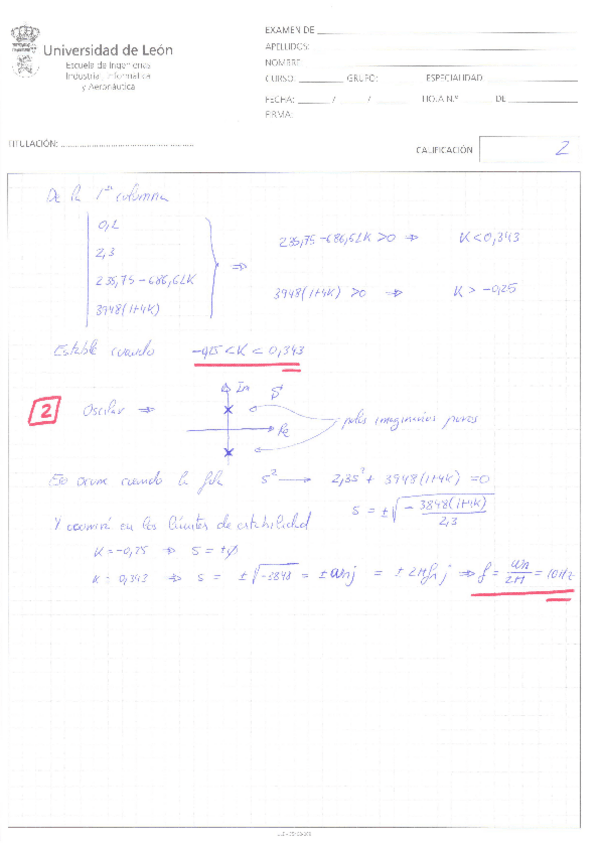 Universidad de León
Escuela de Ingenierías
Industrial, Informática
y Aeronáutica
EXAMEN DE
APELLIDOS:
NOMBRE:
CURSO: GRUPO: ESPECIALIDAD
FECHA: / / HOJA N.º DE
FIRMA:
TITULACIÓN:
CALIFICACIÓN 2
De la 1ª columna
0,2
2,3
235,75 - 686,62K
3948(1+4K)
⇒
235,75 - 686,62K > 0 ⇒ K < 0,343
3948(1+4K) > 0 ⇒ K > -0,25
Estable cuando -0,25 < K < 0,343
2 Oscilar ⇒
Im S
Re
polos imaginarios puros
Eso ocurre cuando la fila s² → 2,3s² + 3948(1+4K) = 0
s = ±√-3848(1+4K)/2,3
Y ocurrirá en los límites de estabilidad
K = -0,25 ⇒ s = ±0
K = 0,343 ⇒ s = ±√-3848 = ± ωn j = ± 2πfn j ⇒ f = ωn/2π = 10Hz